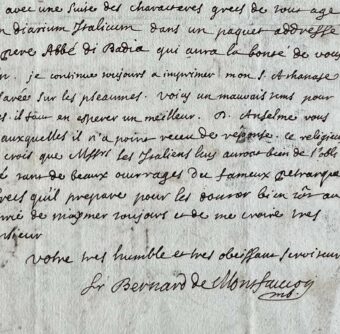 avec une suite des characteres grecs de tout age
n diarium Italicum dans un paquet addressé
pere Abbé di Badia qui aura la bonté de vous
je continue toujours a imprimer mon S. Athanase
sur les pseaumes. voicy un mauvais tems pour
il faut en esperer un meilleur. D. Anselme vous
auxquelles il n'a point receu de réponse. ce religieux
crois que Messrs les Italiens luy auront bien de l'obli
tant de beaux ouvrages du fameux petrarque
grecs qu'il prepare pour les donner bien tôt au
de m'aymer toujours et de me croire tres
sieur
votre tres humble et tres obeissant serviteur
fr Bernard de Montfaucon
mb.